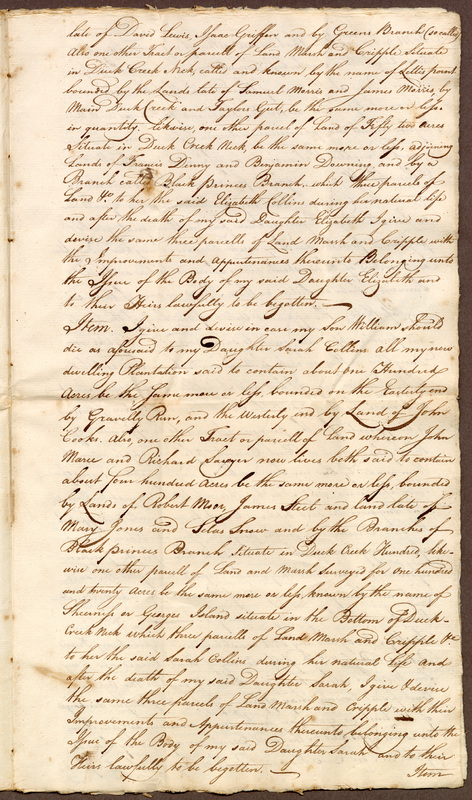 late of David Lewis, Isaac Griffen and by Greens Branch (so called)
Also one other Tract or parcell of Land Marsh and Cripple Situated
in Duck Creek Neck, called and known by the name of
bounded by the Lands late of Samuel Morris and James Morris by
Main Duck Creek and Taylors Gut, be the same more or less
in quantity. Likewise, one other parcel of Land of Fifty two acres
Situate in Duck Creek Neck, be the same more or less, adjoining
Lands of Francis Denny and Benjamin Downing, and by a
Branch called Black princes Branch. which three parcels of
Land &c to her the said Elizabeth Collins during her natural life
and after the death of my said Daughter Elizabeth I give and
devise the same three parcells of Land Marsh and Cripple with
the Improvements and Appurtenances thereunto Belonging unto
the Issue of the Body of my said Daughter Elizabeth and
to their Heirs lawfully to be begotten.
Item. I give and devise in case my Son William should
die as aforesaid to my Daughter Sarah Collins all my new
dwelling Plantation said to contain about one Hundred
Acres be the Same more or less, bounded on the Easterly end
by Gravelly Run, and the Westerly end by Land of John
Cooks. Also, one other Tract or parcell of Land whereon John
Maree and Richard Sawyer now lives both said to contain
about four hundred Acres be the same more or less, bounded
by Lands of Robert Moor, James Steet and land late of
Mary Jones and Silas Snow and by the Branches of
Black princes Branch Situate in Duck Creek Hundred, like-
wise one other parcell of Land and Marsh Surveyed for one hundred
and twenty Acres be the same more or less, known by the name of
Sheerness or Georges Island situate in the Bottom of Duck-
Creek Neck which three parcells of Land Marsh and Cripple &c
to her the said Sarah Collins during her natural life and
after the death of my said Daughter Sarah, I give & devise
the same three parcels of Land Marsh and Cripple with their
Improvements and Appurtenances thereunto belonging unto the
Issue of the Body of my said Daughter Sarah and to their
Heirs lawfully to be begotten.
Item